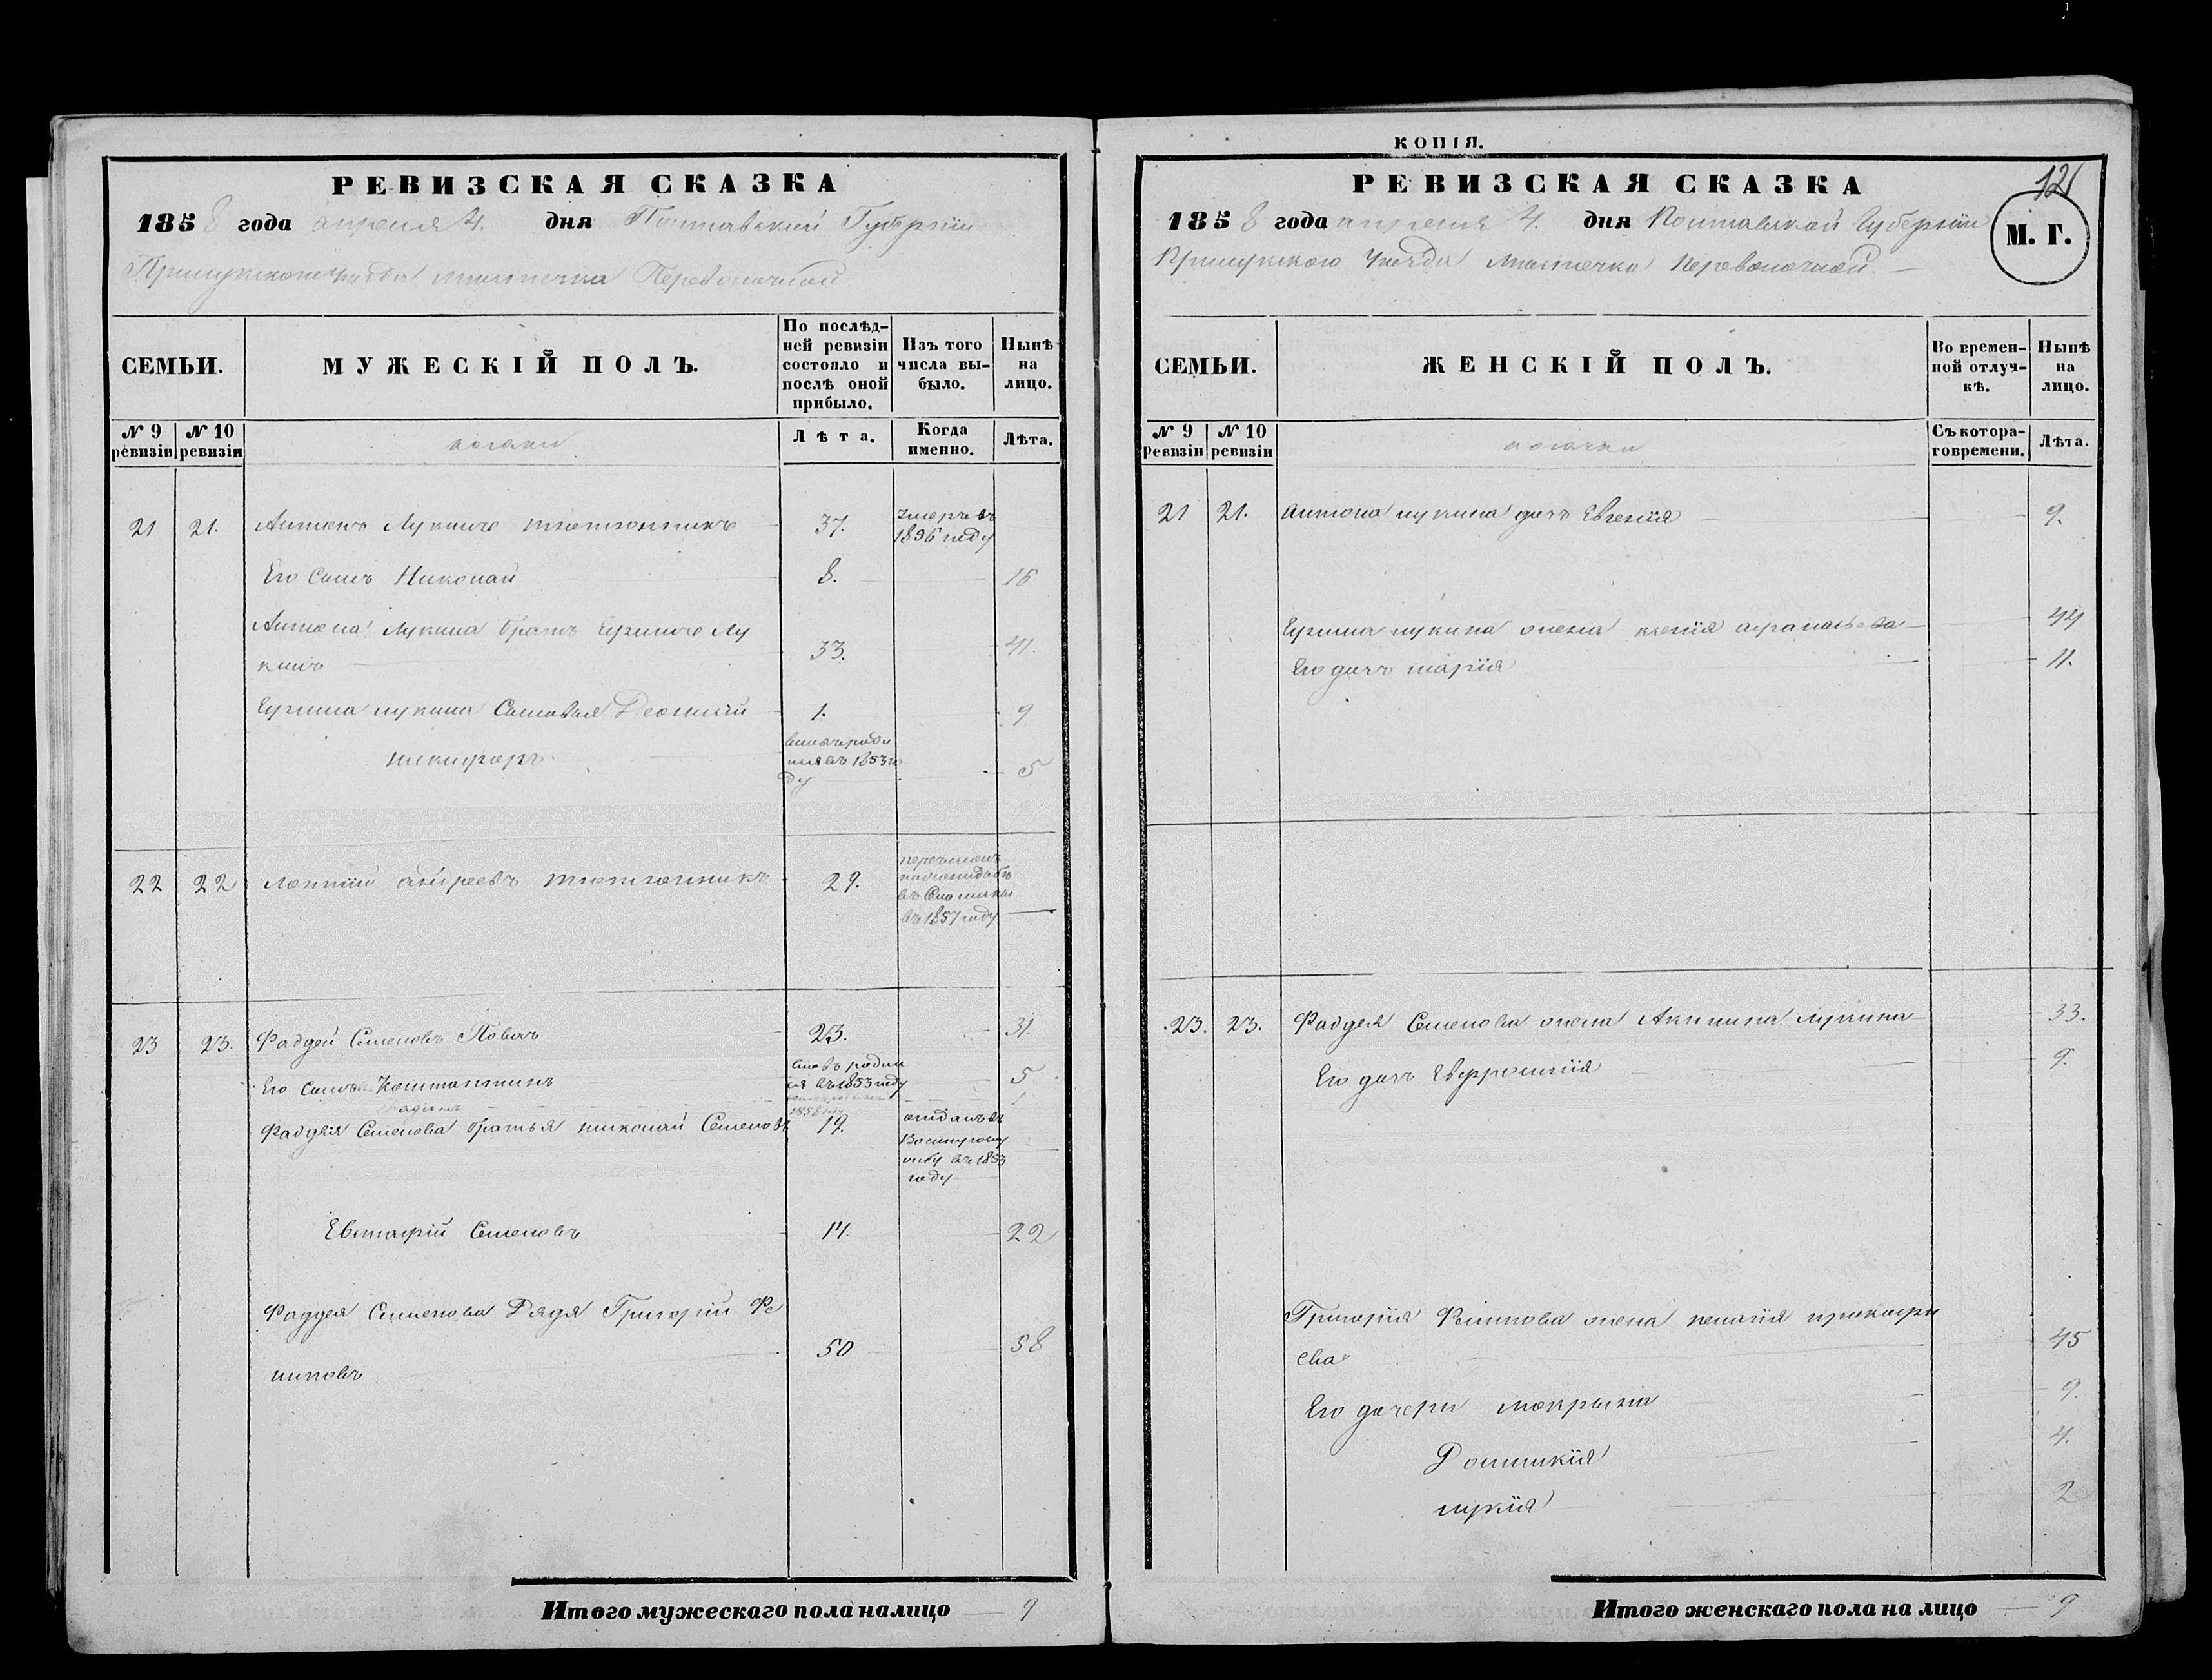 КОПІЯ.
РЕВИЗСКАЯ СКАЗКА
1858 года апреля 4. дня Полтавской Губерніи
Прилукского Уезда местечка Переволочной
СЕМЬИ.
МУЖЕСКІЙ ПОЛЪ.
По послѣд-
ней ревизіи
состояло и
послѣ оной
прибыло.
Изъ того
числа вы-
было.
Нынѣ
на
лицо.
№ 9
ревизіи
№ 10
ревизіи
козаки
Лѣта.
Когда
именно.
Лѣта.
21 21. Антонъ Лукинъ 37. умеръ въ
1856 году
Его Сынъ Николай 8. 16
Антона Лукина братъ Лу
кинъ 33. 41.
лукина Сыновья Леонтій 1. 9
никифоръ
въ 1853 го
ду 5
22 22 андреевъ 29.
въ 1857 году
23 23. Фаддей Семеновъ 23. 31.
Его Сынъ Константинъ
въ 1853 году 5
Фаддея Семенова братья николай Семеновъ 19. отданъ въ
въ 1853
году
Евстафій Семеновъ 14. 22
Фаддея Семенова Дядя Григорій Фи
липовъ 50 58
Итого мужескаго пола налицо 9
РЕВИЗСКАЯ СКАЗКА
121
1858 года апреля 4. дня Полтавской Губерніи
Прилукского Уезда местечка Переволочной.
М. Г.
СЕМЬИ.
ЖЕНСКІЙ ПОЛЪ.
Во времен-
ной отлуч-
кѣ.
Нынѣ
на
лицо.
№ 9
ревизіи
№ 10
ревизіи
козачки
Съ котора-
го времени.
Лѣта.
21 21. Антона лукина дочь Евгенія 9.
лукина жена ксенія афанасьева 44
Его дочь марія 11.
23. 23. Фаддея Семенова жена Акилина Лукина 33.
Его дочь Евфросинія 9.
Григорія Филипова жена пелагія прокофи
ева 45
Его дочери 9.
Домникія 4.
лукія 2
Итого женскаго пола на лицо 9